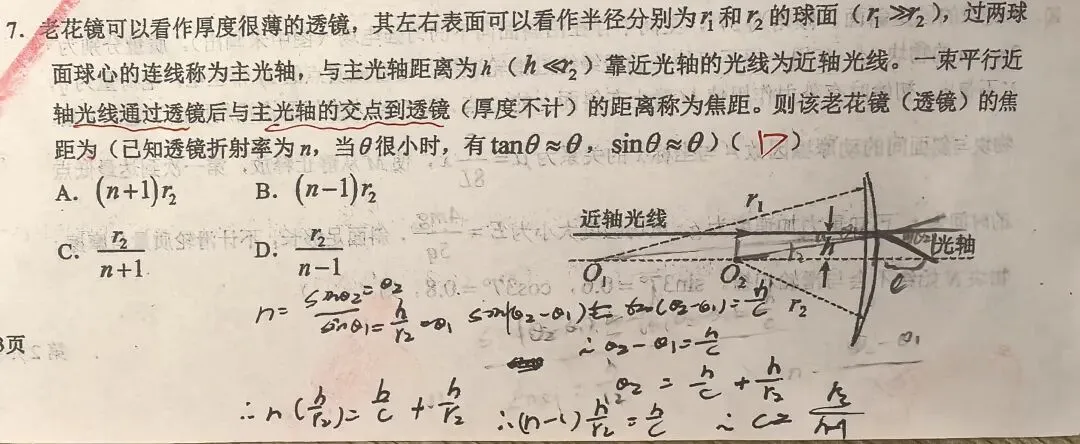 7. 老花镜可以看作厚度很薄的透镜，其左右表面可以看作半径分别为r₁和r₂的球面（r₁≫r₂），过两球
面球心的连线称为主光轴，与主光轴距离为h（h≪r₂）靠近光轴的光线为近轴光线。一束平行近
轴光线通过透镜后与主光轴的交点到透镜（厚度不计）的距离称为焦距。则该老花镜（透镜）的焦
距为（已知透镜折射率为n，当θ很小时，有tanθ≈θ，sinθ≈θ）（ D ）
A. (n+1)r₂ B. (n−1)r₂
C. r₂/(n+1) D. r₂/(n−1)
近轴光线 r₁ h 光轴
O₁ O₂ r₂ c
n= sinθ₂=θ₂ / sinθ₁=h/r₂=θ₁ sin(θ₂-θ₁)≈tan(θ₂-θ₁)=h/c
∴θ₂-θ₁=h/c
θ₂=h/c+h/r₂
∴n(h/r₂)=h/c+h/r₂ ∴(n-1)h/r₂=h/c ∴c=r₂/(n-1)
页